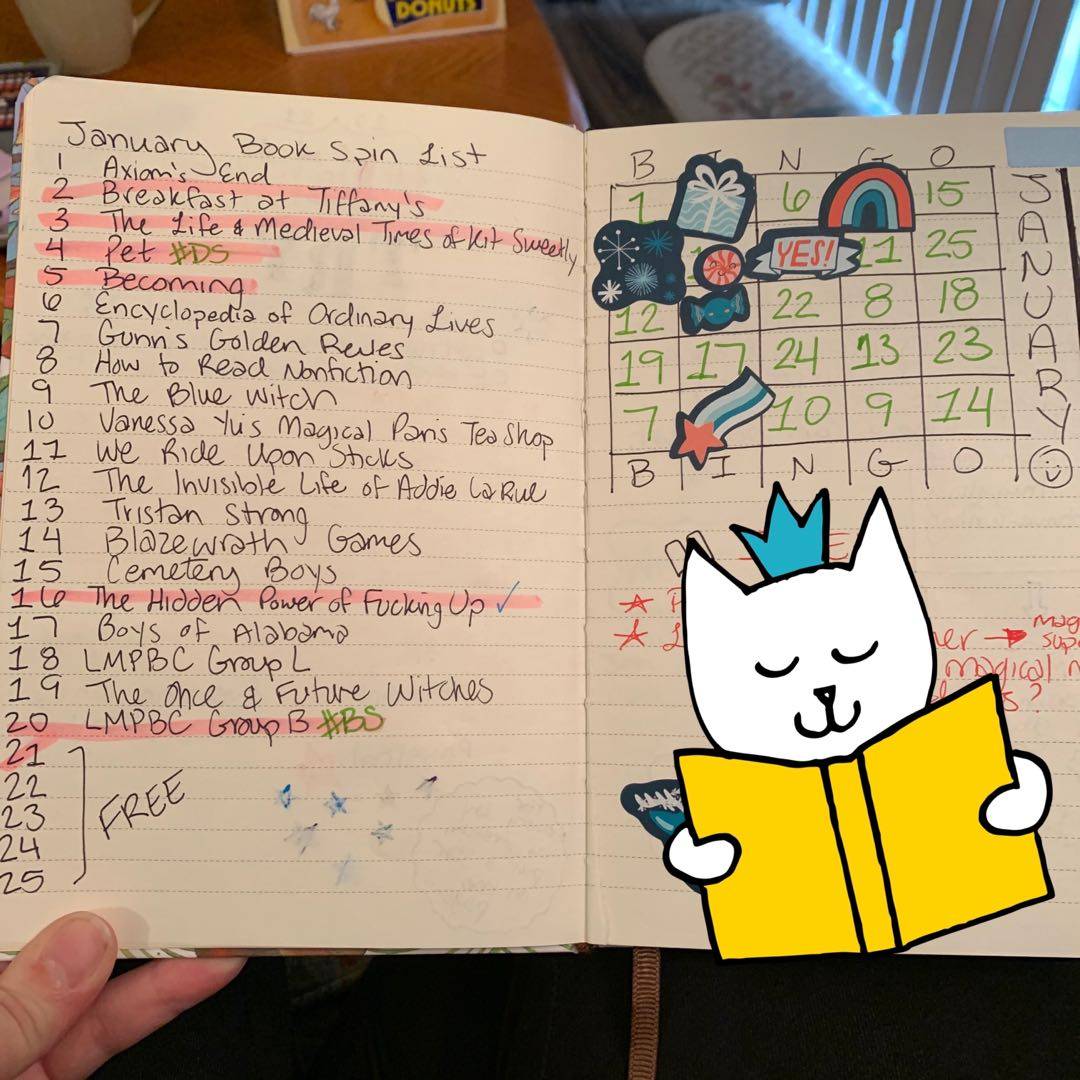 DONUTS
January Book Spin List
1 Axiom's End
2 Breakfast at Tiffany's
3 The Life & Medieval Times of Kit Sweetly
4 Pet #DS
5 Becoming
6 Encyclopedia of Ordinary Lives
7 Gunn's Golden Rules
8 How to Read Nonfiction
9 The Blue Witch
10 Vanessa Yu's Magical Paris Tea Shop
11 We Ride Upon Sticks
12 The Invisible Life of Addie LaRue
13 Tristan Strong
14 Blazewrath Games
15 Cemetery Boys
16 The Hidden Power of Fucking Up ✓
17 Boys of Alabama
18 LMPBC Group L
19 The Once & Future Witches
20 LMPBC Group B #BS
21
22
23
24
25
FREE
B I N G O
1 6 15
YES! 11 25
12 22 8 18
19 17 24 13 23
7 10 9 14
B I N G O
JANUARY
magical